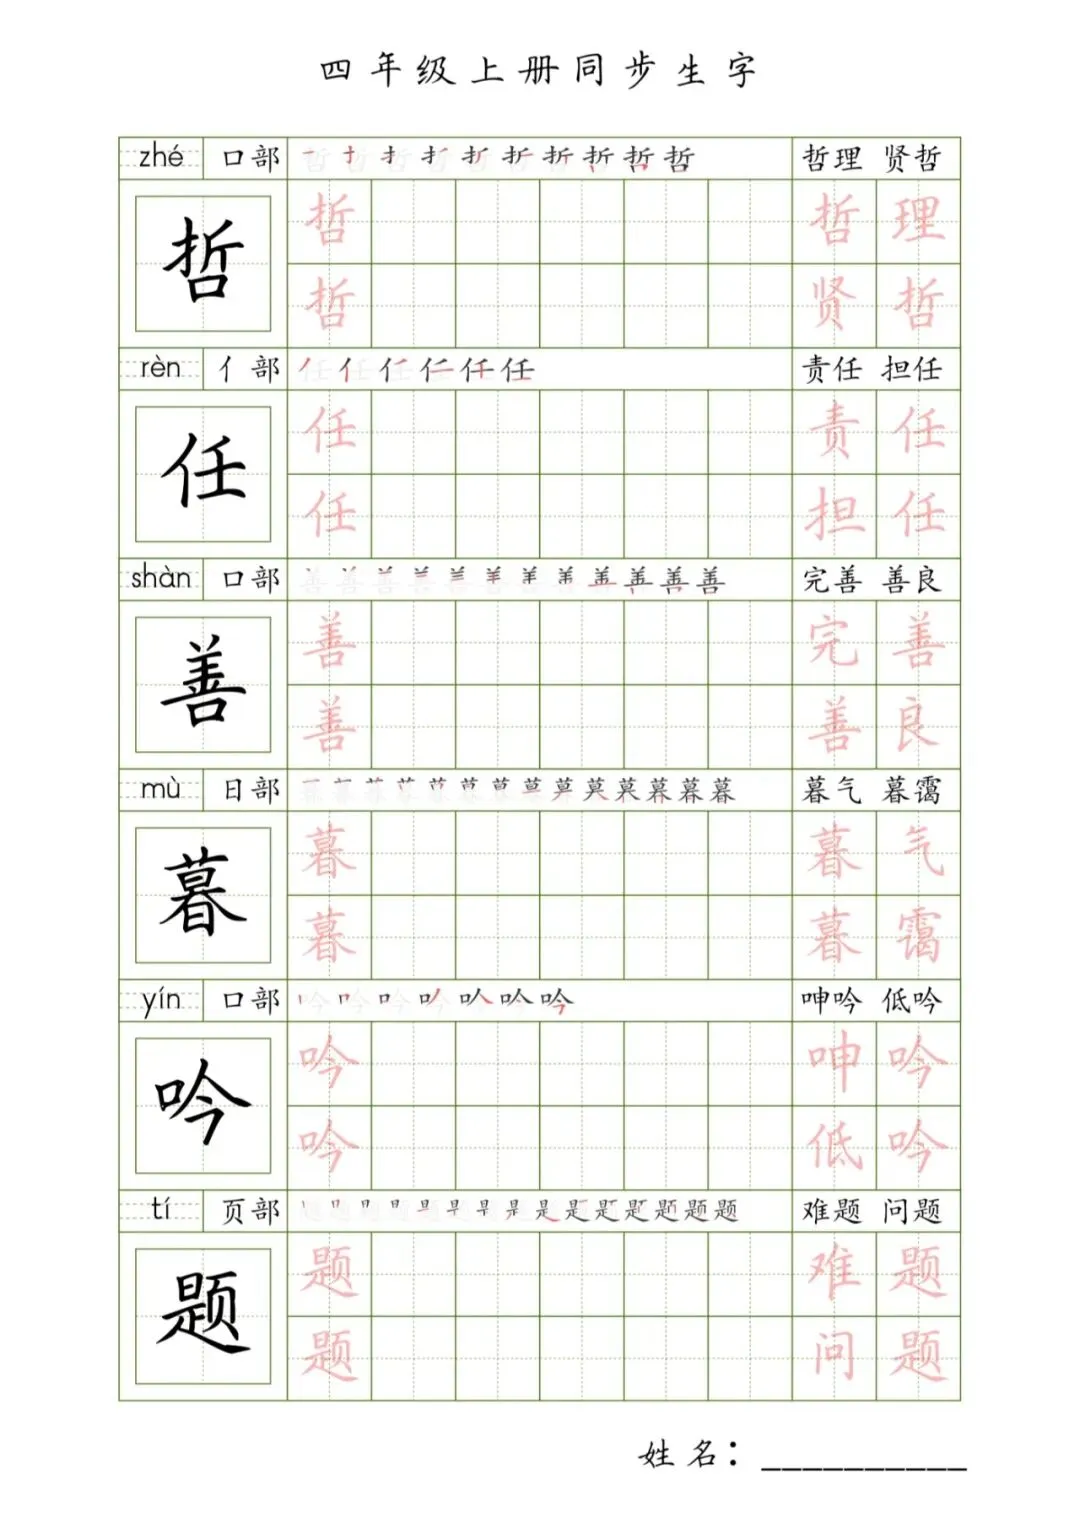 四年级上册同步生字
zhé 口部 哲理 贤哲
哲 哲 哲 理
哲 贤 哲
rèn 亻部 责任 担任
任 任 责 任
任 担 任
shàn 口部 完善 善良
善 善 完 善
善 善 良
mù 日部 暮气 暮霭
暮 暮 暮 气
暮 暮 霭
yín 口部 呻吟 低吟
吟 吟 呻 吟
吟 低 吟
tí 页部 难题 问题
题 题 难 题
题 问 题
姓名：__________